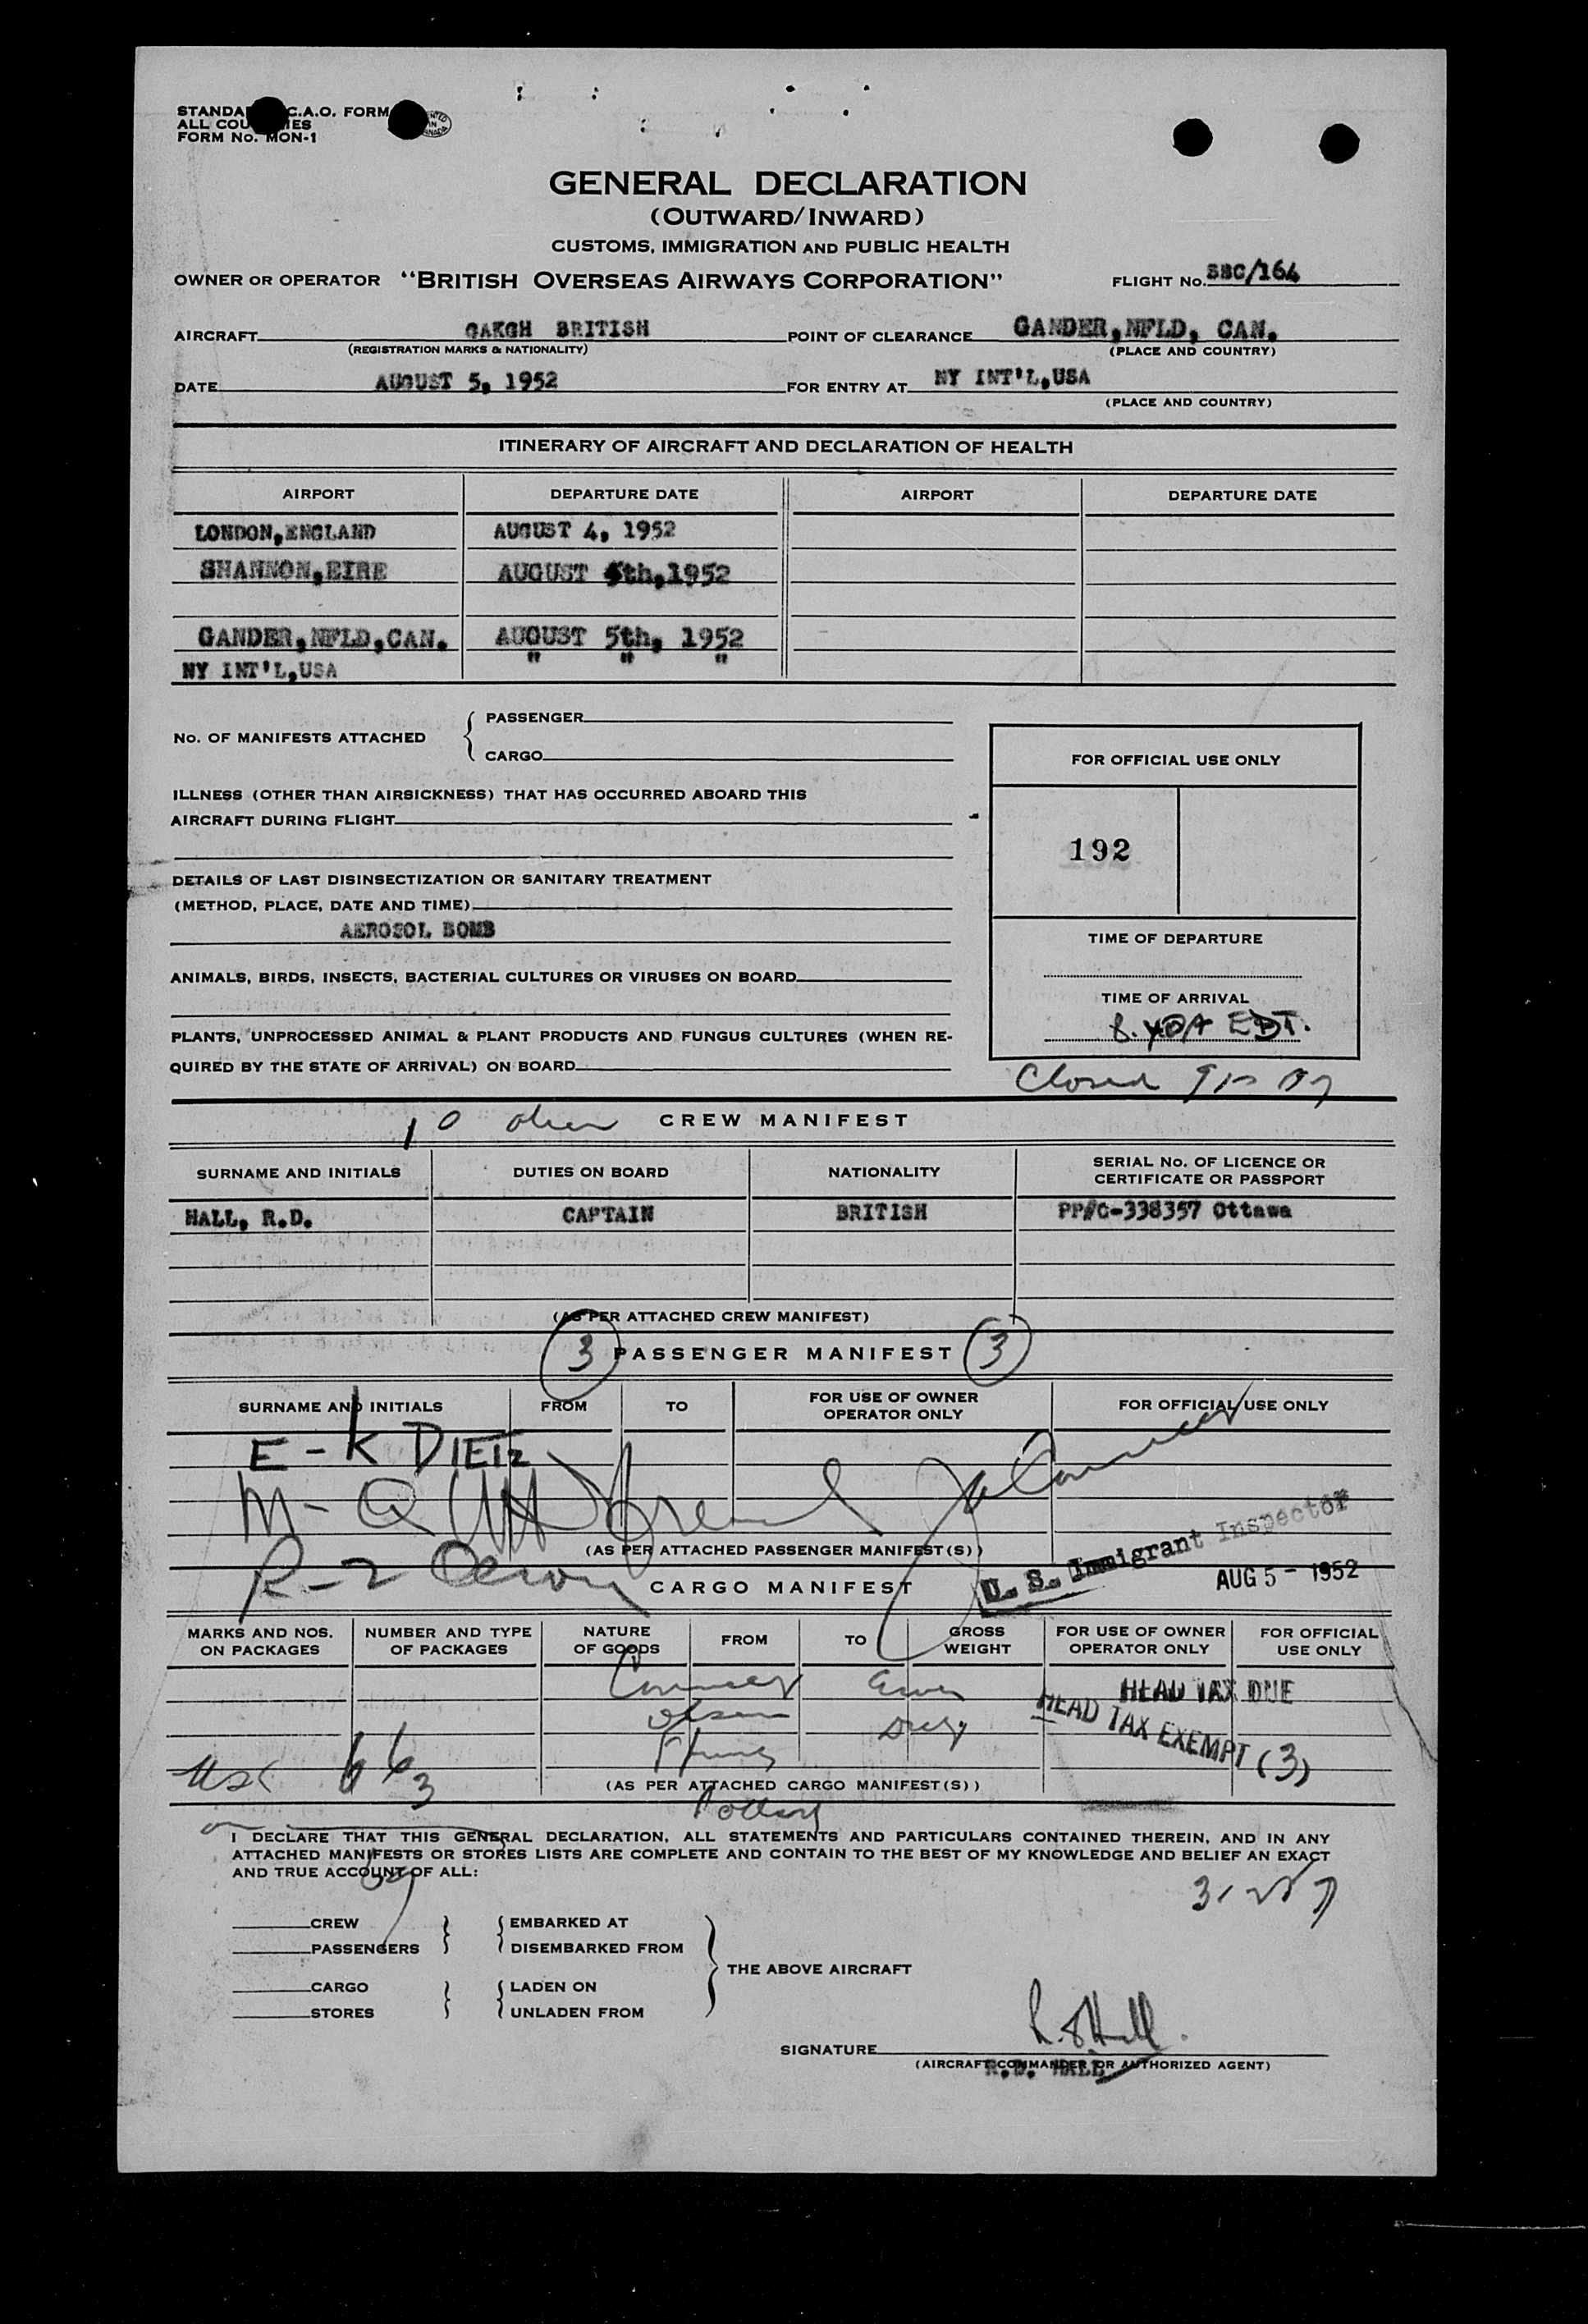 STANDA C.A.O. FORM
ALL COU IES
FORM No. MON-1
GENERAL DECLARATION
(OUTWARD/INWARD)
CUSTOMS, IMMIGRATION AND PUBLIC HEALTH
OWNER OR OPERATOR "BRITISH OVERSEAS AIRWAYS CORPORATION" FLIGHT No. SBC/164
AIRCRAFT GAKGH BRITISH POINT OF CLEARANCE GANDER,NFLD, CAN.
(REGISTRATION MARKS & NATIONALITY) (PLACE AND COUNTRY)
DATE AUGUST 5, 1952 FOR ENTRY AT NY INT'L,USA
(PLACE AND COUNTRY)
ITINERARY OF AIRCRAFT AND DECLARATION OF HEALTH
AIRPORT DEPARTURE DATE AIRPORT DEPARTURE DATE
LONDON,ENGLAND AUGUST 4, 1952
SHANNON,EIRE AUGUST 5th,1952
GANDER,NFLD,CAN. AUGUST 5th, 1952
NY INT'L,USA " " "
No. OF MANIFESTS ATTACHED { PASSENGER
CARGO
FOR OFFICIAL USE ONLY
ILLNESS (OTHER THAN AIRSICKNESS) THAT HAS OCCURRED ABOARD THIS
AIRCRAFT DURING FLIGHT
192
DETAILS OF LAST DISINSECTIZATION OR SANITARY TREATMENT
(METHOD, PLACE, DATE AND TIME)
AEROSOL BOMB
TIME OF DEPARTURE
ANIMALS, BIRDS, INSECTS, BACTERIAL CULTURES OR VIRUSES ON BOARD
TIME OF ARRIVAL
8.40A EDT.
PLANTS, UNPROCESSED ANIMAL & PLANT PRODUCTS AND FUNGUS CULTURES (WHEN RE-
QUIRED BY THE STATE OF ARRIVAL) ON BOARD
Closed
10 CREW MANIFEST
SURNAME AND INITIALS DUTIES ON BOARD NATIONALITY SERIAL No. OF LICENCE OR
CERTIFICATE OR PASSPORT
HALL, R.D. CAPTAIN BRITISH PP#C-338357 Ottawa
(AS PER ATTACHED CREW MANIFEST)
3 PASSENGER MANIFEST 3
SURNAME AND INITIALS FROM TO FOR USE OF OWNER
OPERATOR ONLY FOR OFFICIAL USE ONLY
E-K DIETZ
M-Q
R-Z
(AS PER ATTACHED PASSENGER MANIFEST(S))
U. S. Immigrant Inspector
CARGO MANIFEST AUG 5 - 1952
MARKS AND NOS.
ON PACKAGES NUMBER AND TYPE
OF PACKAGES NATURE
OF GOODS FROM TO GROSS
WEIGHT FOR USE OF OWNER
OPERATOR ONLY FOR OFFICIAL
USE ONLY
HEAD TAX DUE
HEAD TAX EXEMPT (3)
(AS PER ATTACHED CARGO MANIFEST(S))
I DECLARE THAT THIS GENERAL DECLARATION, ALL STATEMENTS AND PARTICULARS CONTAINED THEREIN, AND IN ANY
ATTACHED MANIFESTS OR STORES LISTS ARE COMPLETE AND CONTAIN TO THE BEST OF MY KNOWLEDGE AND BELIEF AN EXACT
AND TRUE ACCOUNT OF ALL:
CREW EMBARKED AT
PASSENGERS DISEMBARKED FROM
THE ABOVE AIRCRAFT
CARGO LADEN ON
STORES UNLADEN FROM
SIGNATURE
(AIRCRAFT COMMANDER OR AUTHORIZED AGENT)
R.D. HALL